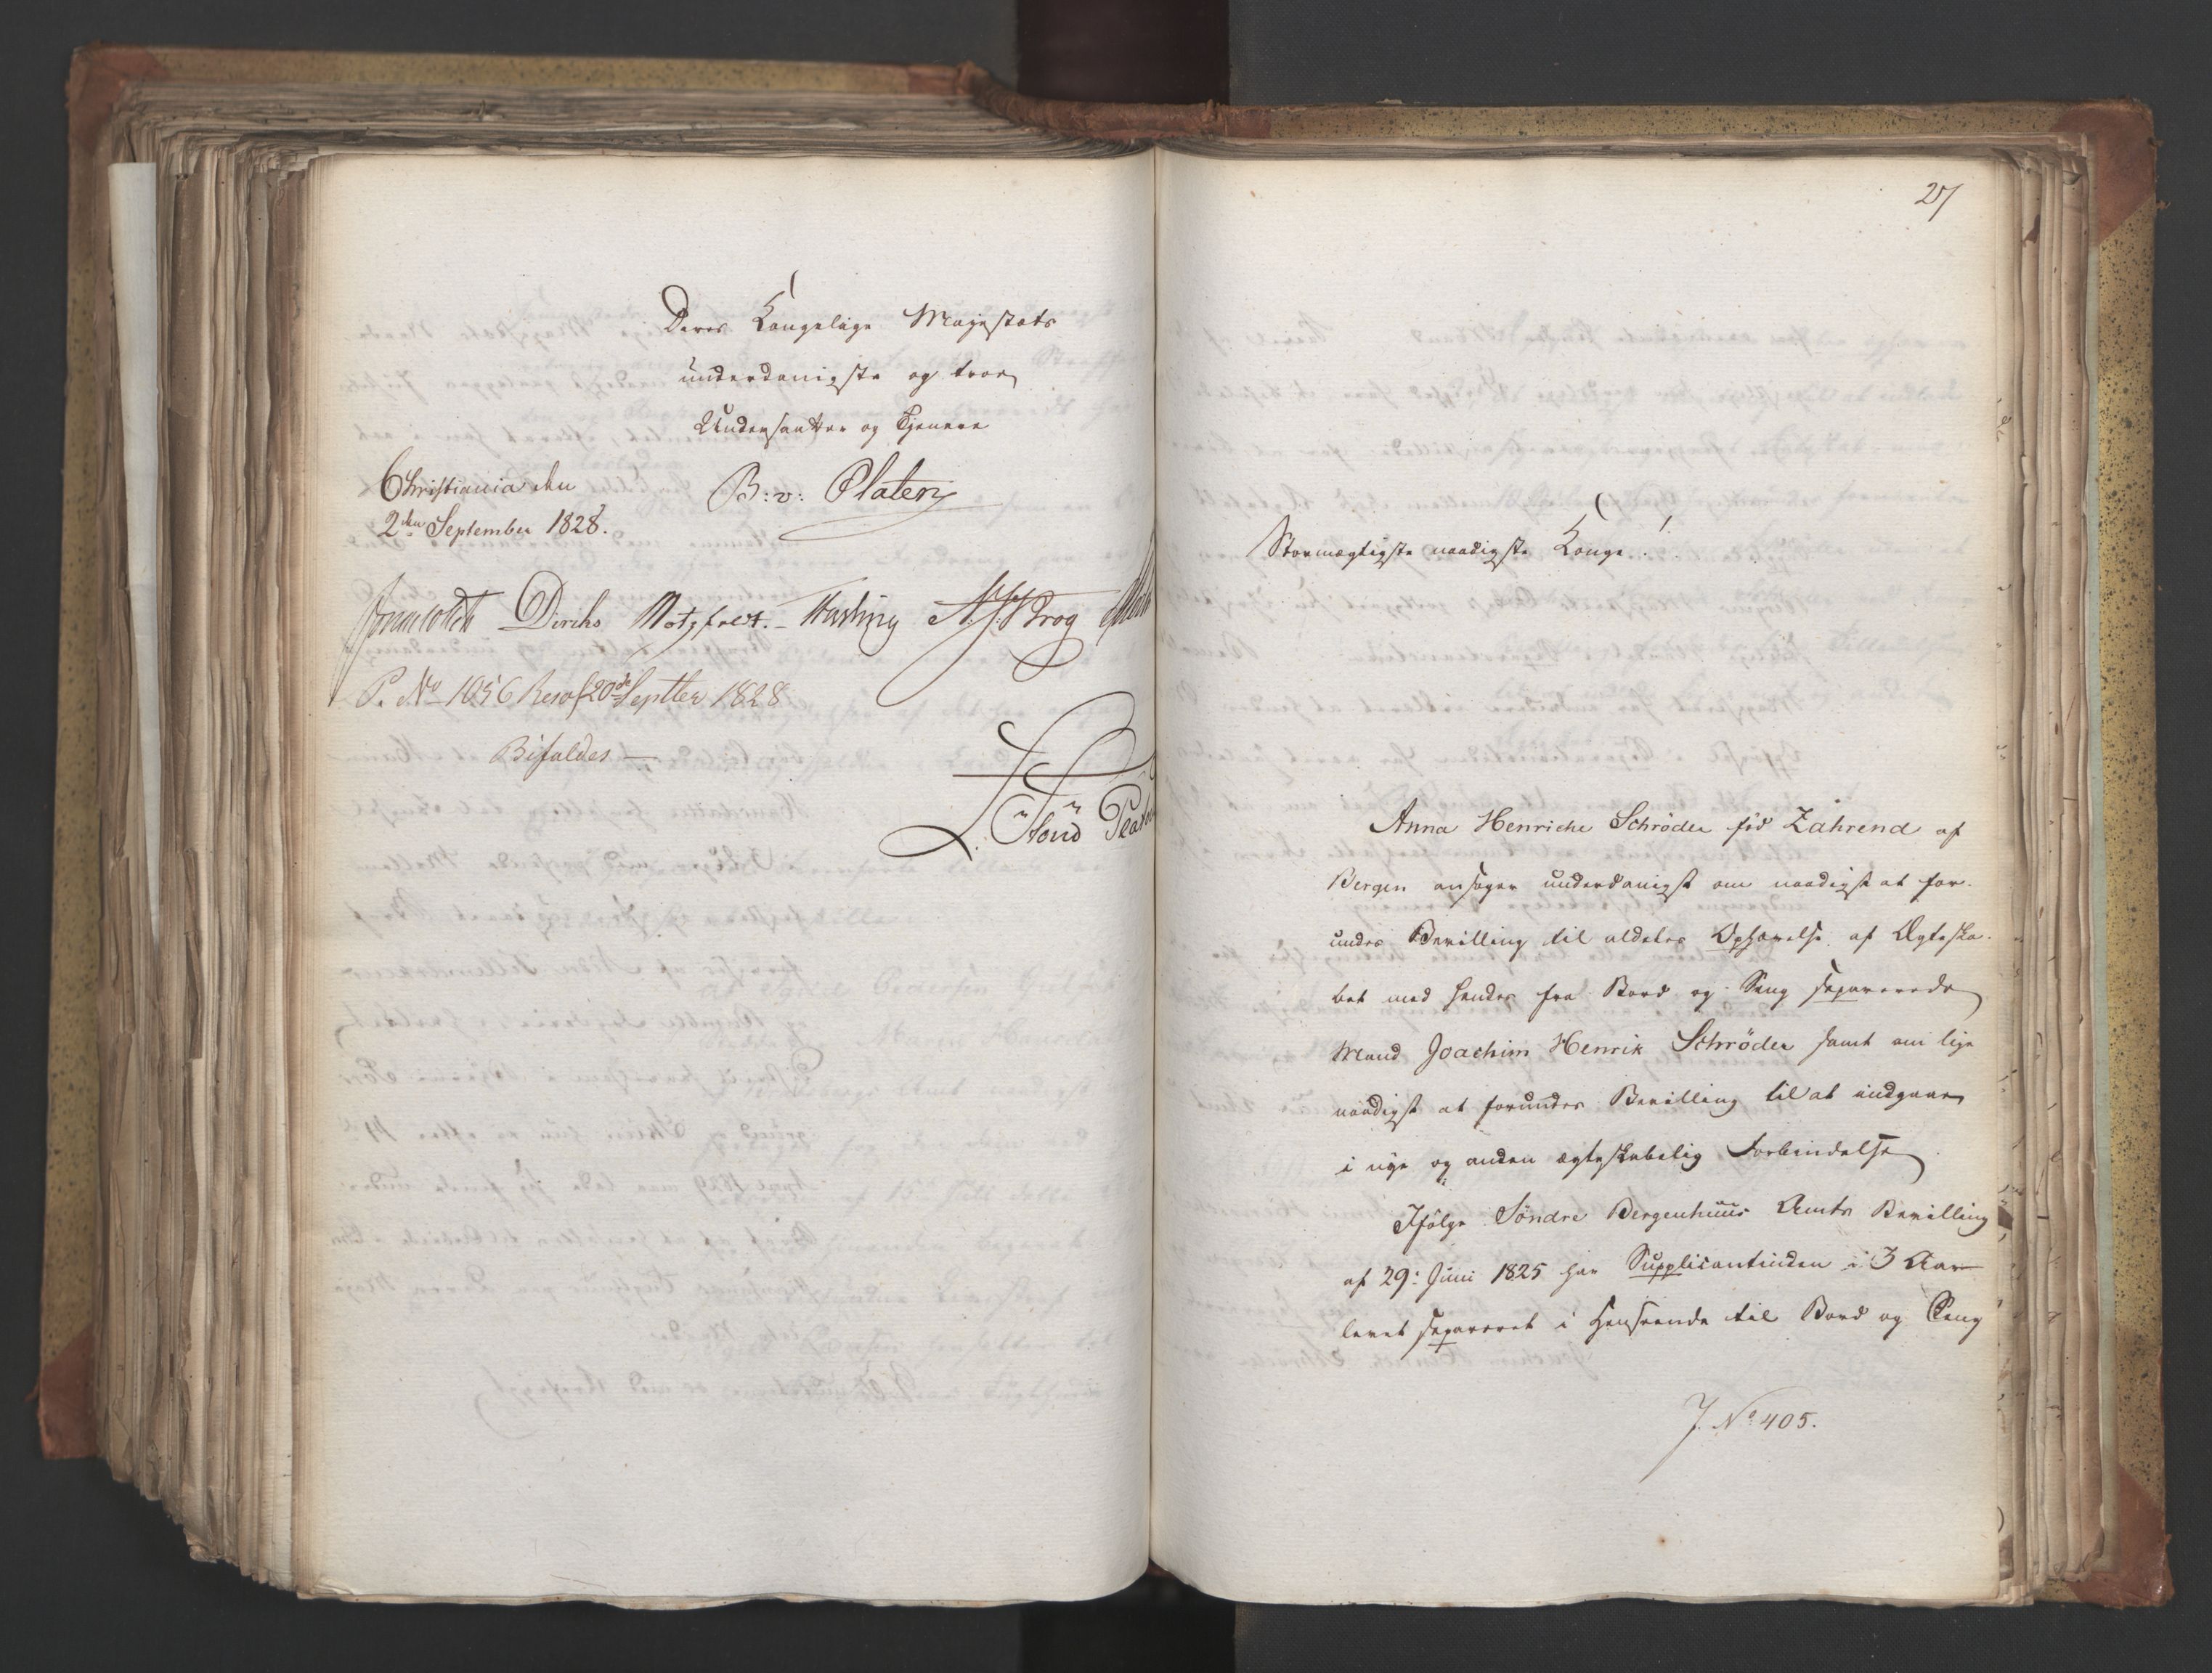 Deres Kongelige Majestæts
underdanigste og troe
Undersatter og Tjenere
Christiania den
2den September 1828.
B: v: Platen
Diriks Motzfeldt. N. J. Krog
P. No 1056 Resol 20de Septber 1828
Bifaldes —
Stormægtigste naadigste Konge!
Anna Henriche Schröder fød Zahrend af
Bergen ansøger underdanigst om naadigst at for-
undes Bevilling til aldeles Ophævelse af Ægteska-
bet med hendes fra Bord og Seng separerede
Mand Joachim Henrik Schröder samt om lige
naadigst at forundes Bevilling til at indgaae
i nye og anden ægteskabelig Forbindelse
Ifölge Söndre Bergenhuus Amts Bevilling
af 29: Juni 1825 har Supplicantinden i 3 Aar
levet separeret i Henseende til Bord og Seng
J. No 405.